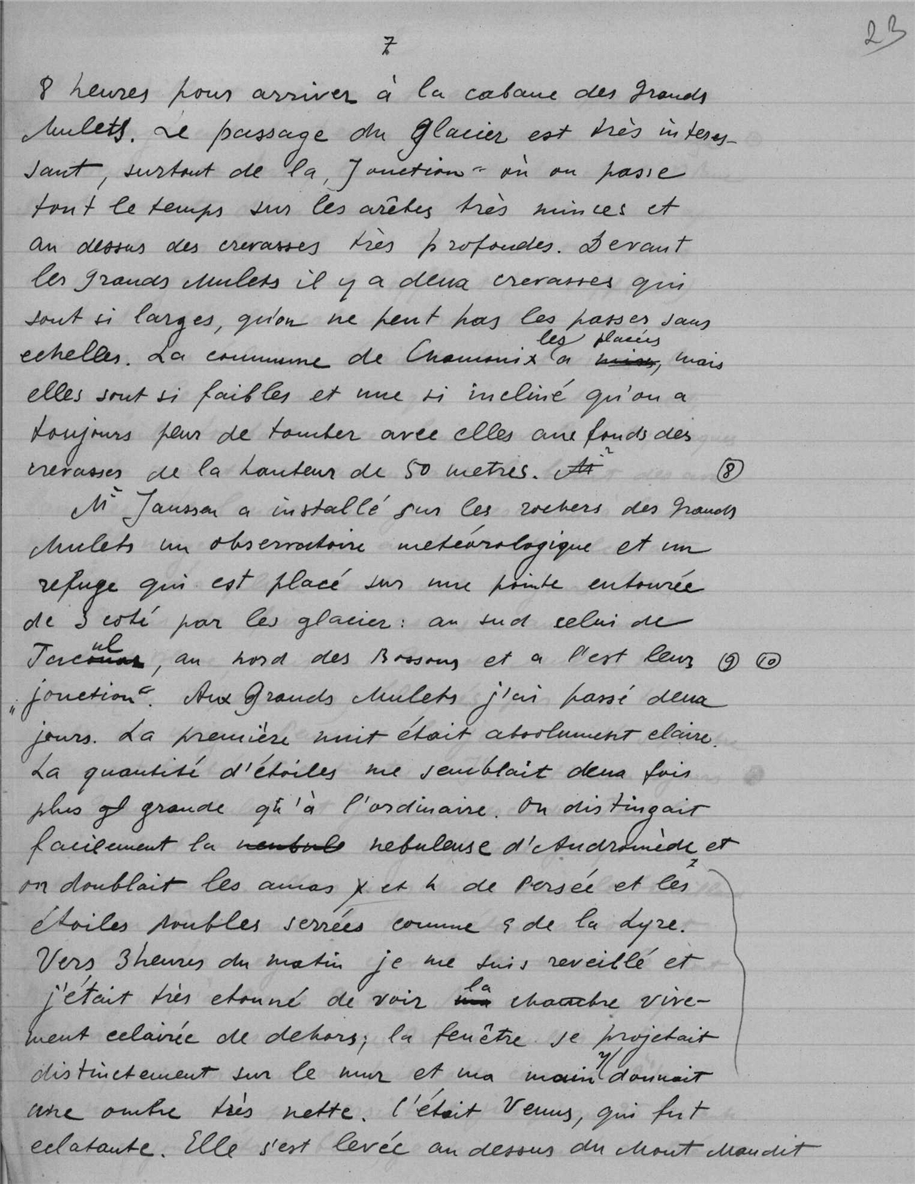 23
7
8 heures pour arriver à la cabane des Grands
Mulets. Le passage du Glacier est très interes-
sant, surtout de la „Jonction“ où on passe
tout le temps sur les arêtes très minces et
au dessus des crevasses très profondes. Devant
les Grands Mulets il y a deux crevasses qui
sont si larges, qu'on ne peut pas les passer sans
echelles. La commune de Chamonix les a placées, mais
elles sont si faibles et une si incliné qu'on a
toujours peur de tomber avec elles aux fonds des
crevasses de la hauteur de 50 metres. (8)
Mr Janssen a installé sur les rochers des Grands
Mulets un observatoire meteórologique et un
refuge qui est placé sur une pointe entourée
de 3 coté par les glacier: au sud celui de
Tacul, au nord des Bossons et a l'est leur (9) (10)
„jonction“. Aux Grands Mulets j'ai passé deux
jours. La première nuit était absolument claire.
La quantité d'étoiles me semblait deux fois
plus grande qu'à l'ordinaire. On distingait
facilement la nebuleuse d'Andromède et
on doublait les amas χ et h de Persée et les
étoiles doubles serrées comme ε de la Lyre.
Vers 3 heures du matin je me suis reveillé et
j'était très etonné de voir la chambre vive-
ment eclairée de dehors; la fenêtre se projetait
distinctement sur le mur et ma main y donnait
une ombre très nette. C'était Venus, qui fut
eclatante. Elle s'est levée au dessus du Mont Maudit